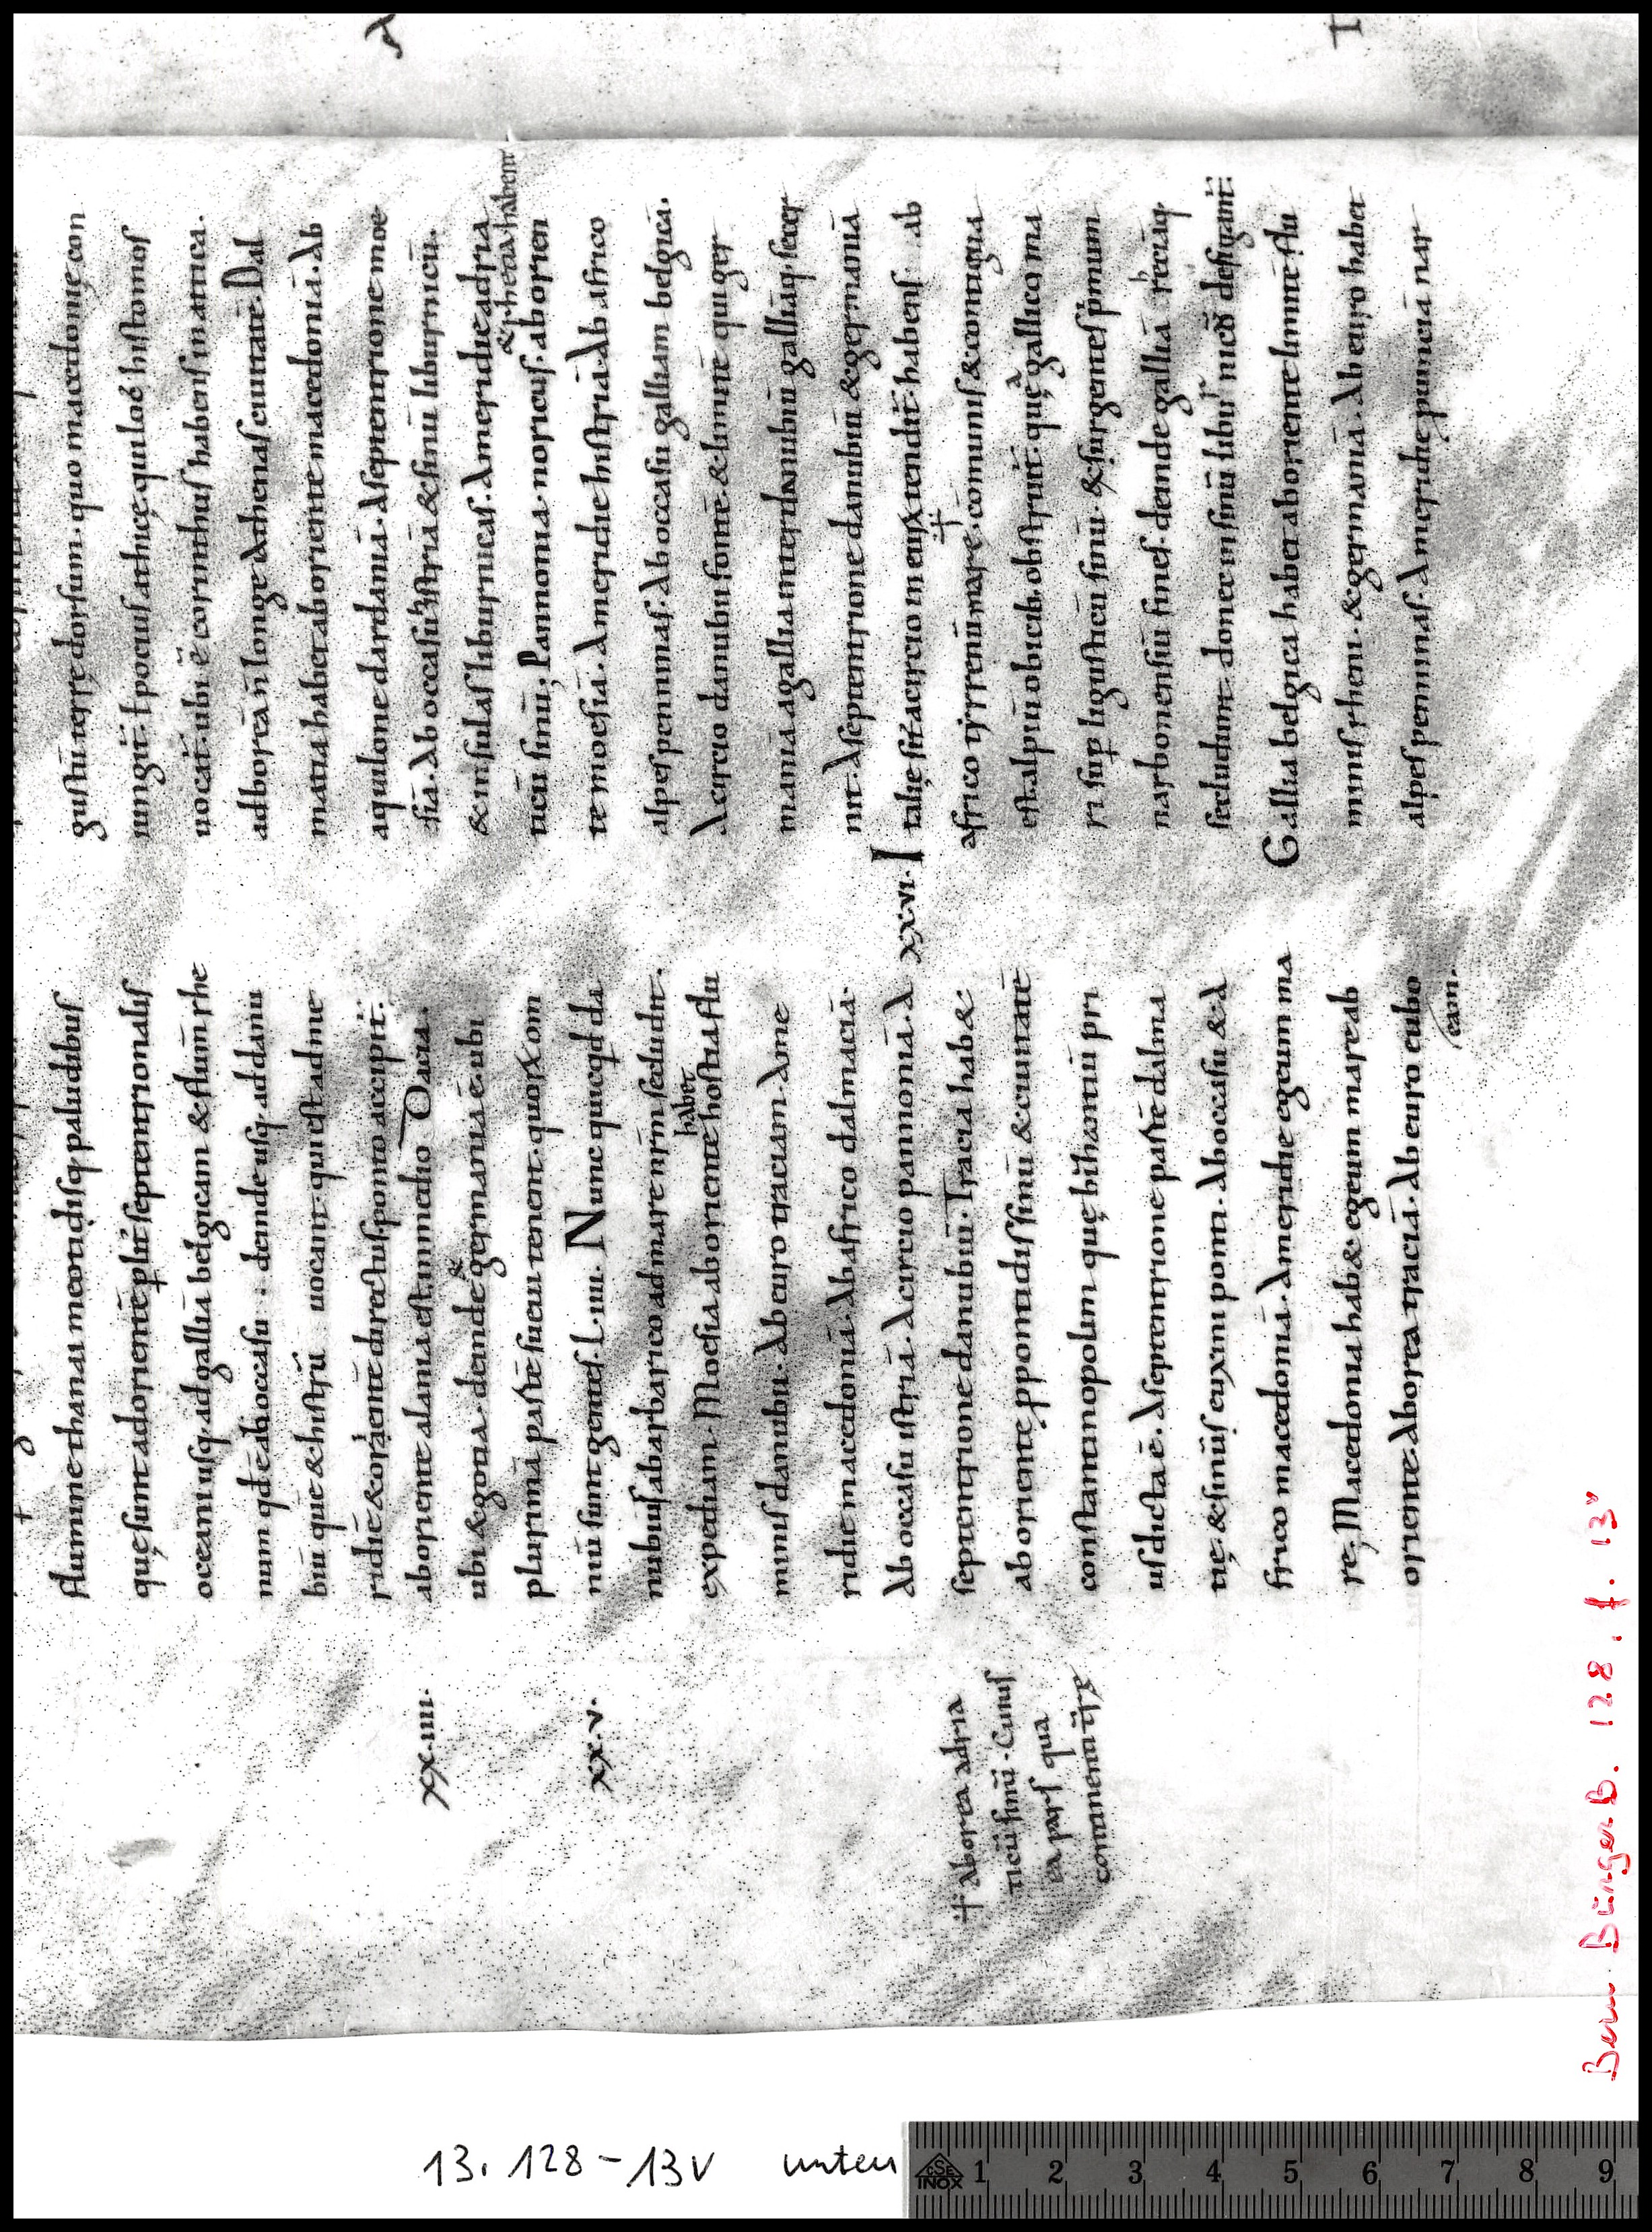 flumine thanai meotidisq; paludibus
quę sunt ad orientē p̱ lit̄ septentrionalis
oceani usq; ad galliā belgicam & flum̄ rhe
num qd̄ ē ab occasu deinde usq; ad danu
biū quē & histrū uocant qui est ad me
ridiē & orientē directus ponto accipit̄.
XX.IIII.
ab oriente alania est. in medio Dacia.
ubi & gotia. deinde & germania ē. ubi
plurimā partē sueui tenent. quorx om
XX.V.
niū sunt gentes. L. IIII. Nunc quicqd da
nubius a barbarico ad mare nr̄m secludit.
expediam. Moesia ab oriente habet hostia flu
minis danubii. ab euro traciam. Ame
ridie macedoniā. Ab africo dalmaciā.
Ab occasu istriā. A circio pannoniā. A
septentrione danubiū. Tracia hab&
ab oriente ppontidis sinū & ciuitatē
constantinopolim quę bihantiū pri
us dicta ē. A septentrione partē dalma
tię. & sinūs euxini ponti. Ab occasu & a
frico macedoniā. A meridie egeum ma
re. Macedonia hab& egeum mare ab
oriente. A borea traciā. Ab euro eubo
eam.
÷ A borea adria
ticū sinū. Cuius
ea pars qua
continenti ip̄e
gustū terrę dorsum. quo macedonię con
iungit̄ ł pocius athicę qui loc̄ histomos
uocat̄. ubi ē corinthus habens in attica.
ad boreā n̄ longe Athenas ciuitatē. Dal
matia habet ab oriente macedoniā. Ab
aquilone dardaniā. A septentrione moe
siā. Ab occasu histriā & sinū liburnicū.
& insulas liburnicas. A meridie adria
ticū sinū, Pannonia. noricus. & rhetia habent ab orien
te moesiā. A meridie histriā. Ab africo
alpes penninas. Ab occasu galliam belgicā.
A circio danubii fontē & limitē qui ger
maniā a gallia inter danubiū galliāq; secer
nit. A septentrione danubiū & germaniā
XXVI. Italię sit̄ a circio in eurx tendit̄ habens ab
africo tyrrenū mare. ÷ cōmunis & contigua
est alpiū obicib; obstruit̄. quę a gallico ma
ri sup̱ ligusticū sinū. & surgentes primum
narbonensiū fines. deinde galliā retiāq;
secludunt. donec in sinū liburnicū defigant̄:
Gallia belgica habet ab oriente limitē flu
minis rheni. & germaniā. Ab euro habet
alpes penninas. A meridie puinciā nar
Bern Bürgerb. 128. f. 13v
13. 128 - 13v unten
CSE INOX 1 2 3 4 5 6 7 8 9